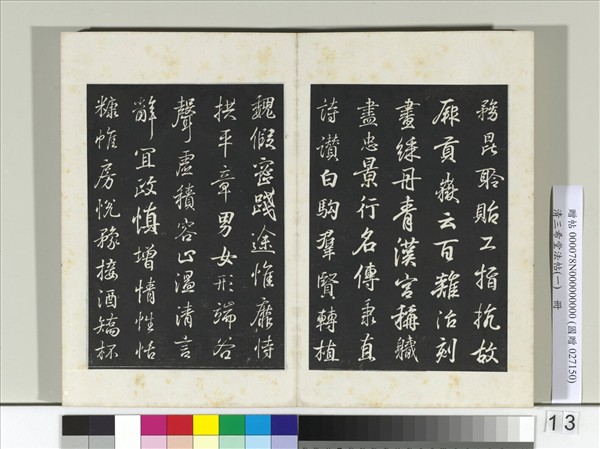 務昆聆貽工指抗故
厥貢嶽云百難治刻
畫綵丹青漢宮稱職
盡忠景行名傳秉直
詩讚白駒羣賢轉植
魏假密踐途惟靡恃
拱平章男女形端谷
聲虛積容止溫清言
辭宜政慎增情性恬
糠帷房悅豫接酒矯杯
贈帖 000078N000000000 (國贈 027150)
清三希堂法帖(一) 冊
13